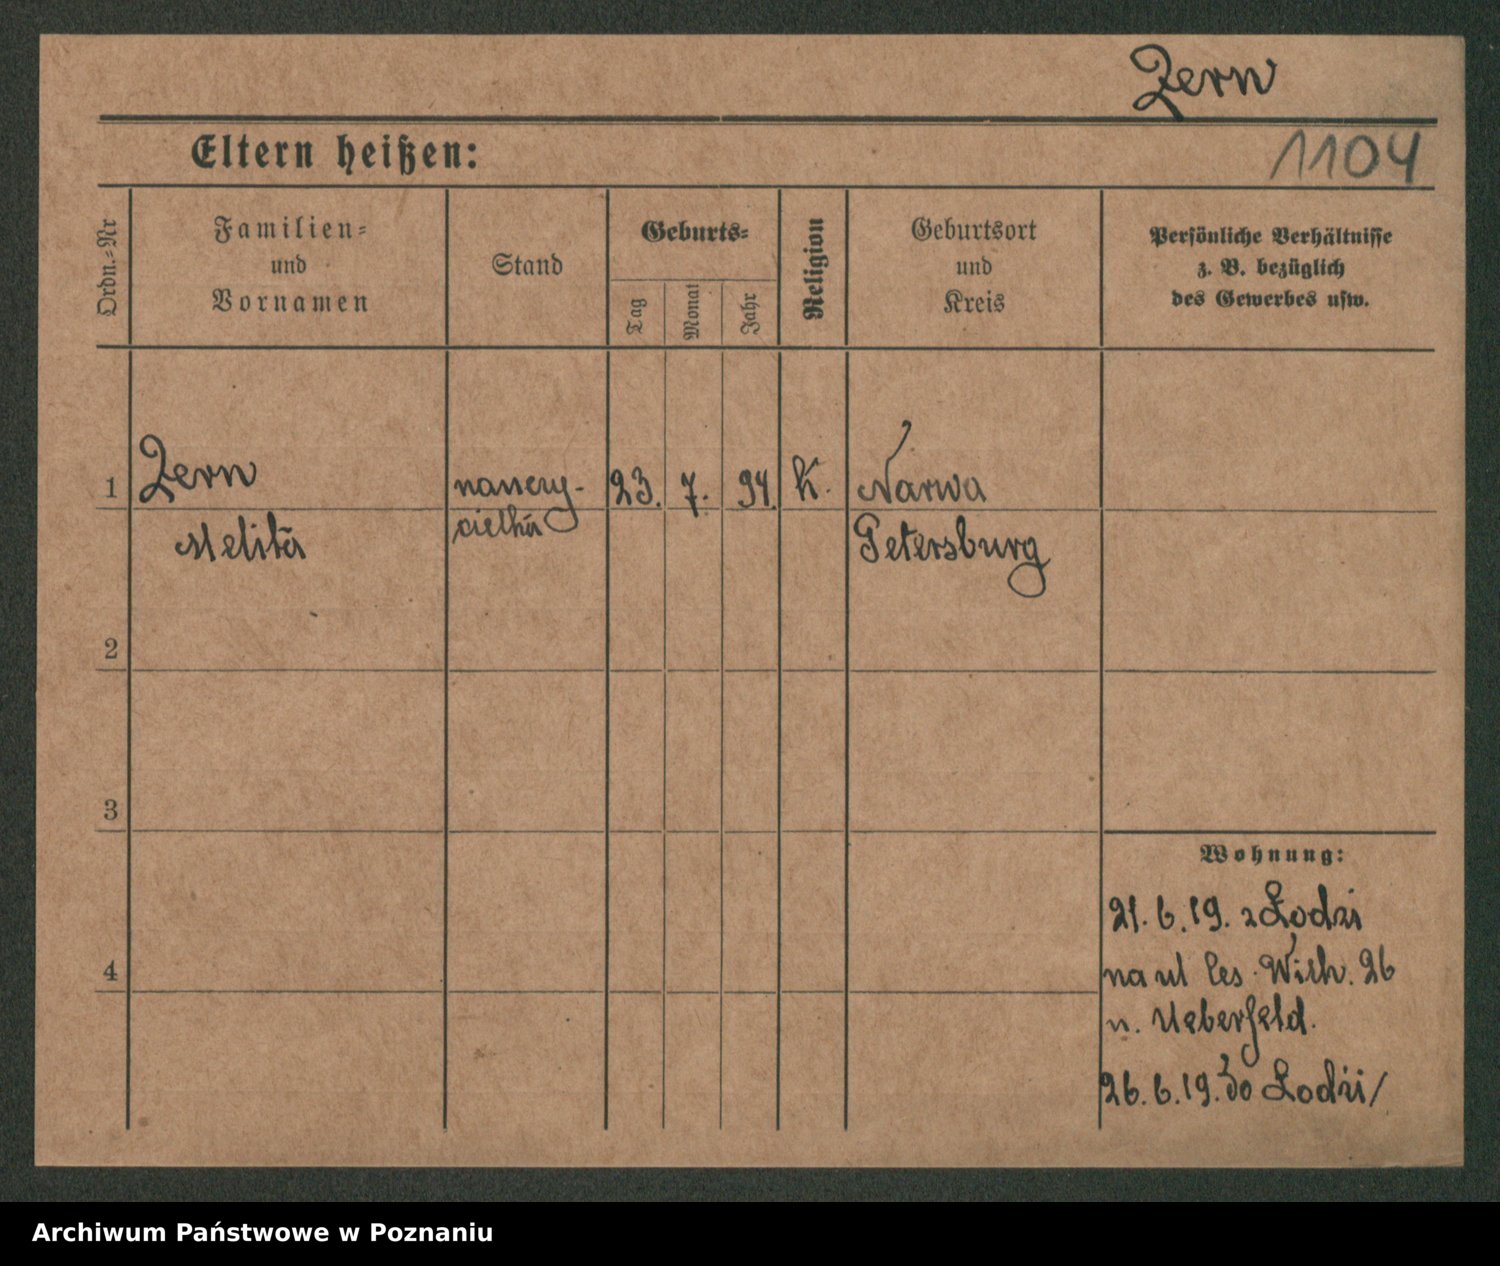 Zern
1104
Eltern heißen:
Ordn.-Nr
Familien-
und
Vornamen
Stand
Geburts-
Tag
Monat
Jahr
Religion
Geburtsort
und
Kreis
Persönliche Verhältnisse
z. B. bezüglich
des Gewerbes usw.
1
Zern
Melita
nauczy-
cielka
23. 7. 94.
K.
Narwa
Petersburg
2
3
4
Wohnung:
21. 6. 19. z Łodzi
na ul Ces. Wilh. 26
u. Ueberfeld.
26. 6. 19. do Łodzi/
Archiwum Państwowe w Poznaniu